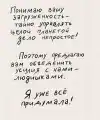 Понимаю вашу
загруженность -
тайно управлять
целой планетой
дело непростое!
Поэтому предлагаю
вам объединить
усилия с нами -
людишками.
Я уже всё
придумала!